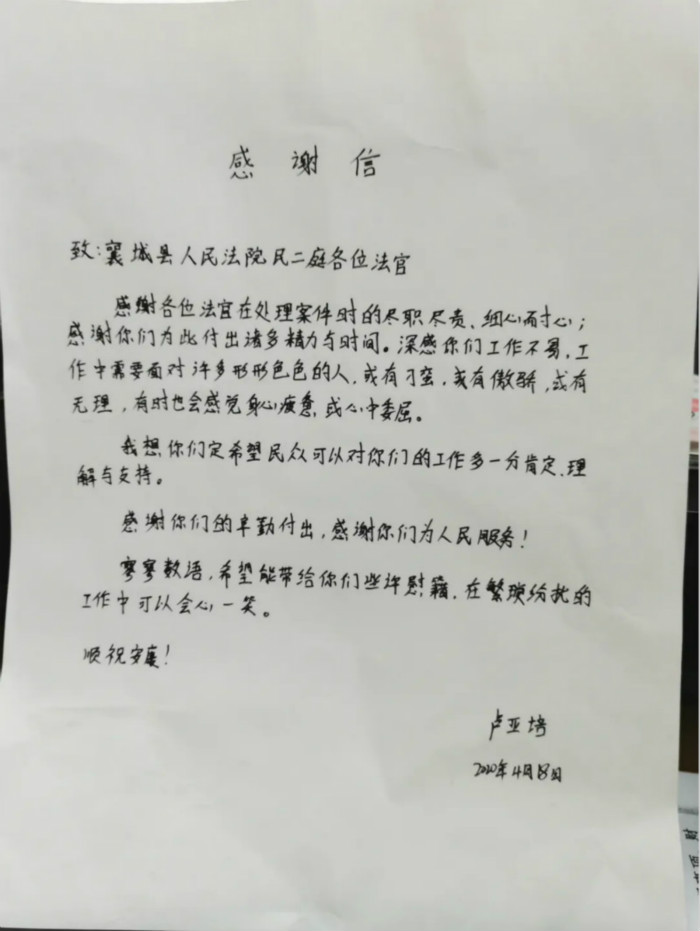 感谢信
致:襄城县人民法院民二庭各位法官
感谢各位法官在处理案件时的尽职尽责、细心耐心;
感谢你们为此付出诸多精力与时间。深感你们工作不易,工
作中需要面对许多形形色色的人,或有刁蛮,或有傲骄,或有
无理,有时也会感觉身心疲惫,或心中委屈。
我想你们定希望民众可以对你们的工作多一分肯定、理
解与支持。
感谢你们的辛勤付出,感谢你们为人民服务!
寥寥数语,希望能带给你们些许慰藉,在繁琐纷扰的
工作中可以会心一笑。
顺祝安康!
卢亚培
2020年4月8日